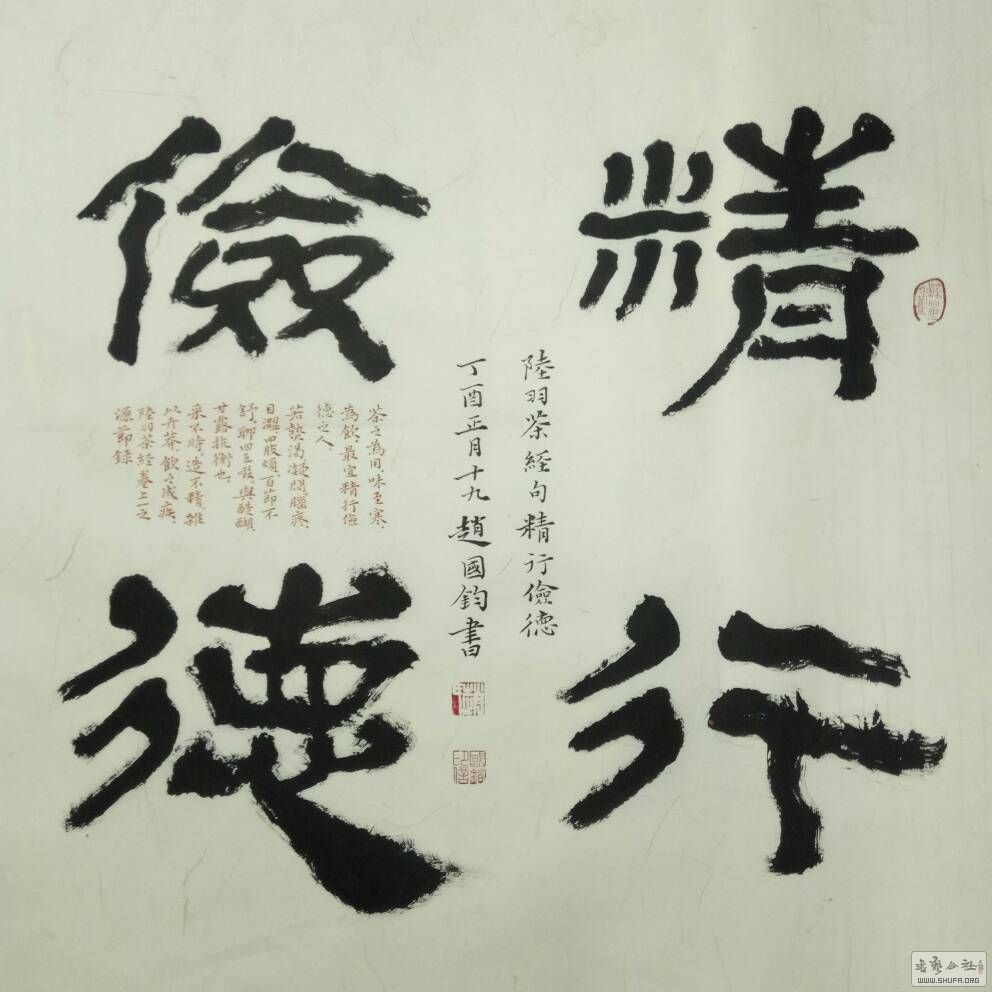 精行
儉德
陸羽茶經句精行儉德
丁酉正月十九趙國鈞書
茶之為用味至寒、
為飲、最宜精行儉
德之人、
若熱渴、凝悶、腦疼、
目澀、四肢煩、百節不
舒、聊四五啜、與醍醐
甘露抗衡也、
采不時、造不精、雜
以卉莽、飲之成疾、
陸羽茶經卷上一之
源節錄
國鈞
印信
書藝公社
WWW.SHUFA.ORG